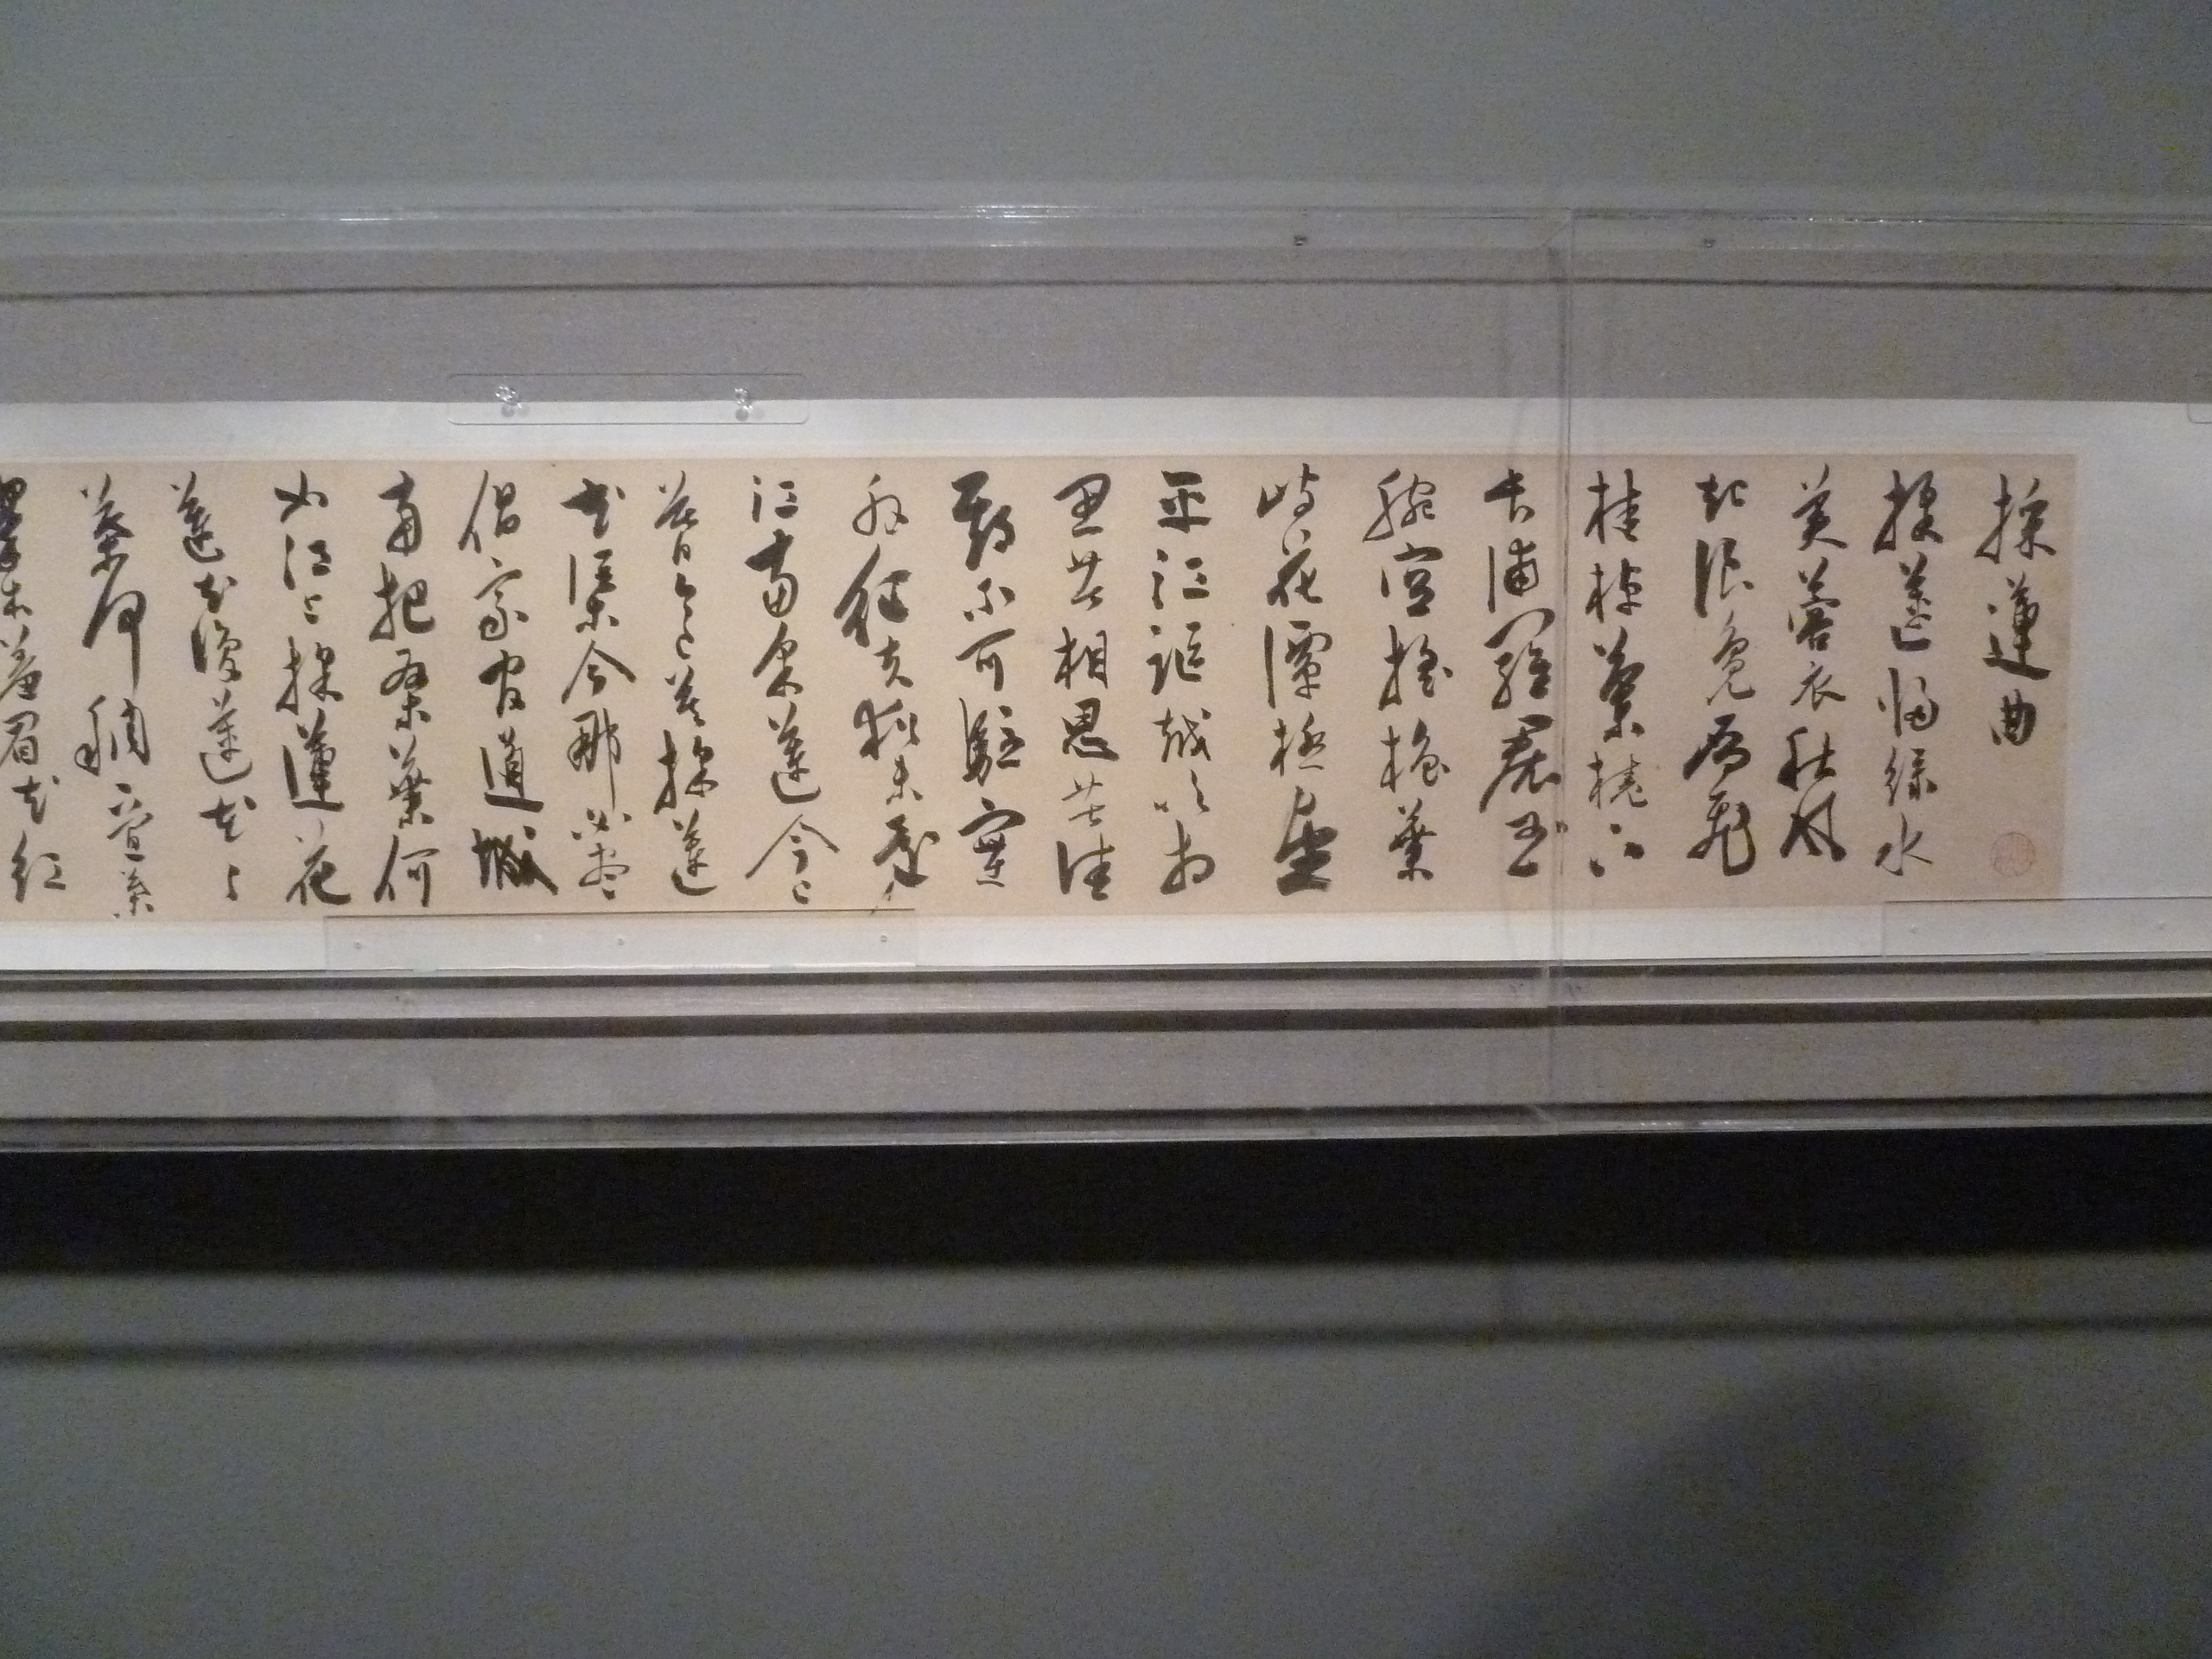 採蓮曲
採蓮歸綠水
芙蓉衣秋風
起浪鳧雁飛
桂棹蘭橈下
長浦羅裙玉
腕搖櫓葉
嶼花潭極望
平江謳越吹相
思苦相思苦佳
期不可駐塞
外征夫猶未還
江南採蓮今已
暮今已暮採蓮
花渠今那必盡
倡家官道城
南把桑葉何
如江上採蓮花
蓮花復蓮花々
葉何稠疊葉
翠本羞眉花紅